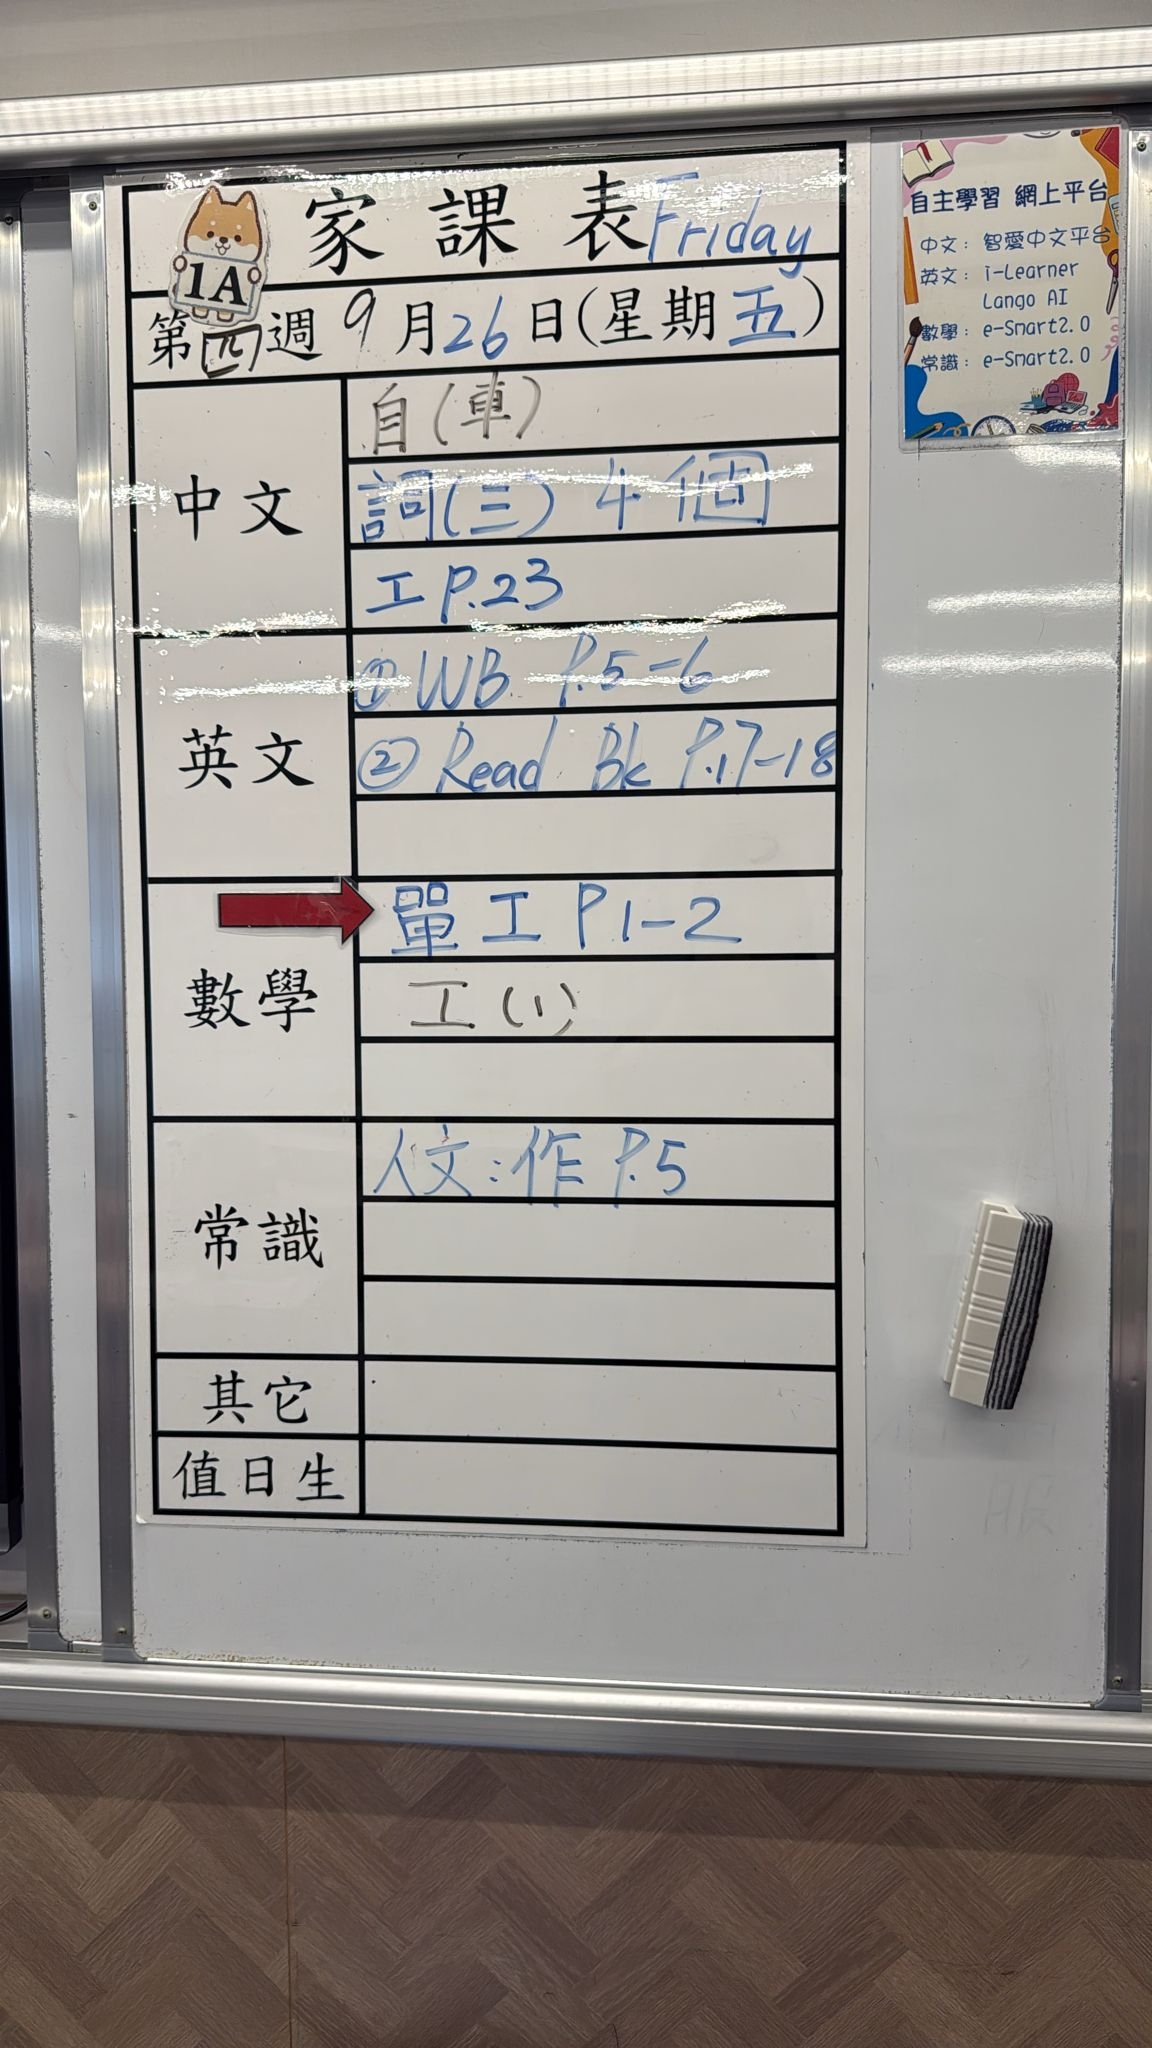 家課表 Friday
1A
第四週 9月26日(星期五)
中文
自(車)
詞(三) 4個
工 P.23
英文
① WB P.5-6
② Read Bk P.17-18
數學
單 工 P.1-2
工 (1)
常識
人文:作 P.5
其它
值日生
自主學習 網上平台
中文: 智愛中文平台
英文: i-Learner
Lango AI
數學: e-Smart2.0
常識: e-Smart2.0